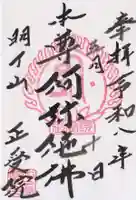 奉拝 令和八年
五月
十
日
本尊阿弥陀佛
明了山
正受院